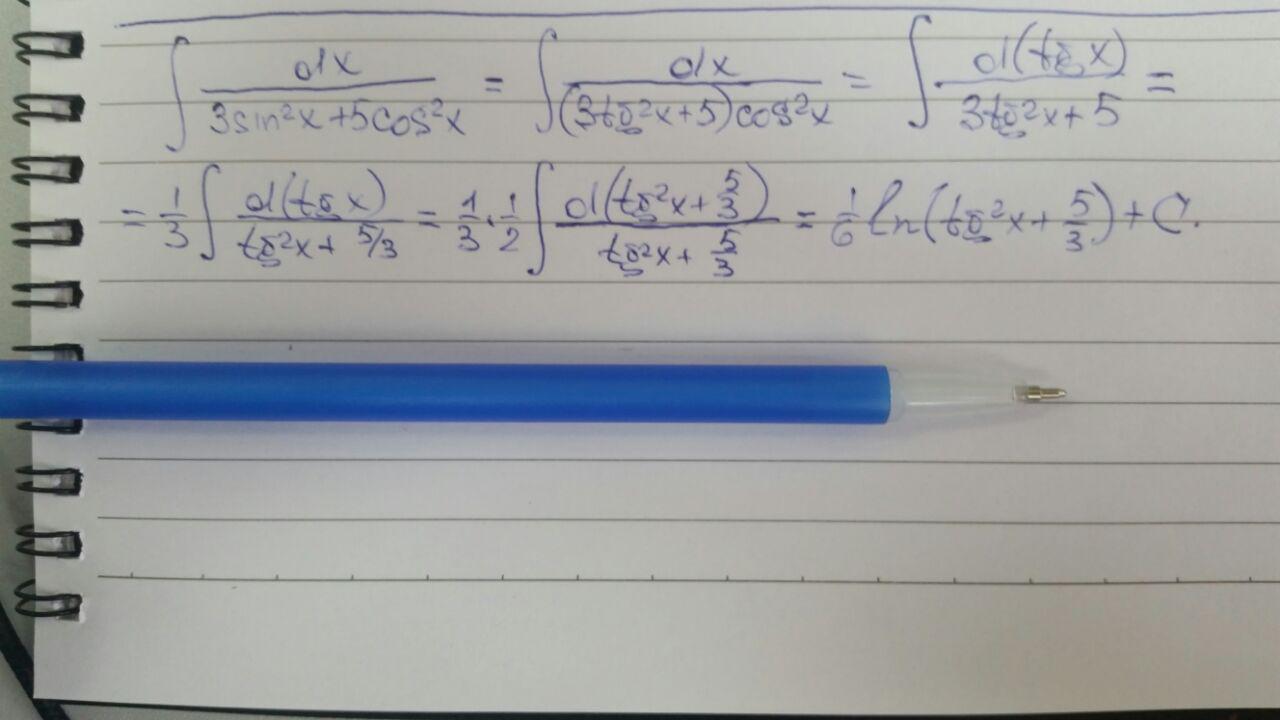 ∫ dx / (3sin²x + 5cos²x) = ∫ dx / ((3tg²x + 5)cos²x) = ∫ d(tg x) / (3tg²x + 5) =
= 1/3 ∫ d(tg x) / (tg²x + 5/3) = 1/3 · 1/2 ∫ d(tg²x + 5/3) / (tg²x + 5/3) = 1/6 ln(tg²x + 5/3) + C.